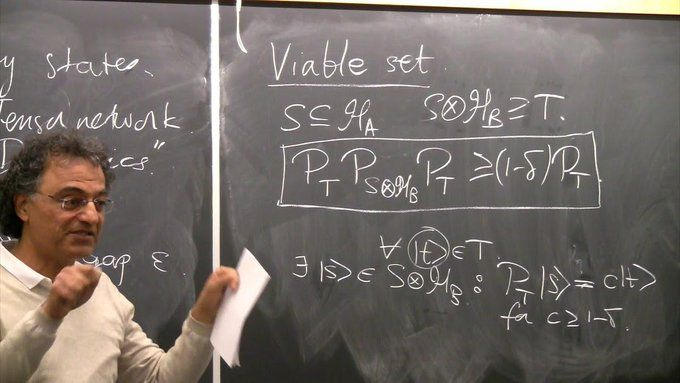 y states.
Tensor network
Dynamics"
gap ε.
Viable set
S ⊆ ℋ_A   S⊗ℋ_B ≥ T.
P_T P_{S⊗ℋ_B} P_T ≥ (1-δ) P_T
∀ |t⟩ ∈ T.
∃ |s⟩ ∈ S⊗ℋ_B : P_T |s⟩ = c|t⟩
for c ≥ 1-δ.